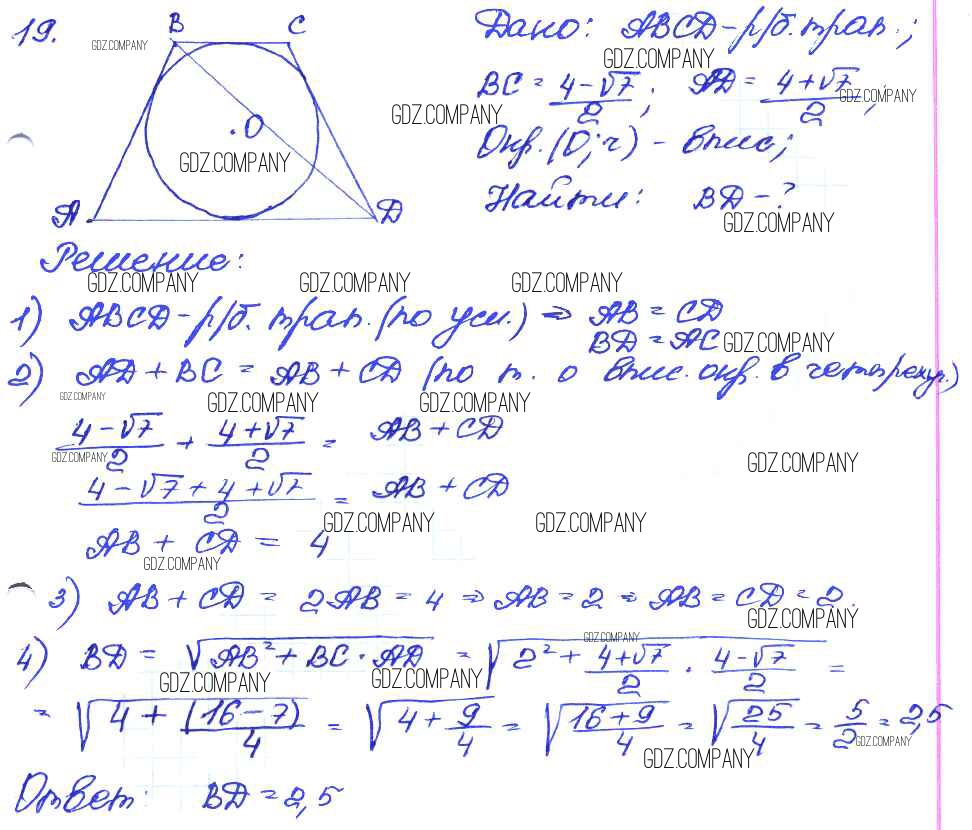 19.
B C
GDZ.COMPANY
Дано: ABCD – р/б. трап.;
GDZ.COMPANY
BC = (4 – √7)/2 ; AD = (4 + √7)/2 ;
GDZ.COMPANY
GDZ.COMPANY
. O
Окр. (O; r) – впис;
GDZ.COMPANY
Найти: BD – ?
A D
GDZ.COMPANY
Решение:
GDZ.COMPANY GDZ.COMPANY GDZ.COMPANY
1) ABCD – р/б. трап. (по усл.) ⇒ AB = CD
BD = AC GDZ.COMPANY
2) AD + BC = AB + CD (по т. о впис. окр. в четырехуг.)
GDZ.COMPANY GDZ.COMPANY GDZ.COMPANY
(4 – √7)/2 + (4 + √7)/2 = AB + CD
GDZ.COMPANY GDZ.COMPANY
(4 – √7 + 4 + √7)/2 = AB + CD
GDZ.COMPANY GDZ.COMPANY
AB + CD = 4
GDZ.COMPANY
3) AB + CD = 2AB = 4 ⇒ AB = 2 ⇒ AB = CD = 2.
GDZ.COMPANY
GDZ.COMPANY
4) BD = √(AB² + BC · AD) = √(2² + (4+√7)/2 · (4–√7)/2) =
GDZ.COMPANY GDZ.COMPANY
= √(4 + (16 – 7)/4) = √(4 + 9/4) = √((16 + 9)/4) = √(25/4) = 5/2 = 2,5
GDZ.COMPANY
GDZ.COMPANY
Ответ: BD = 2,5